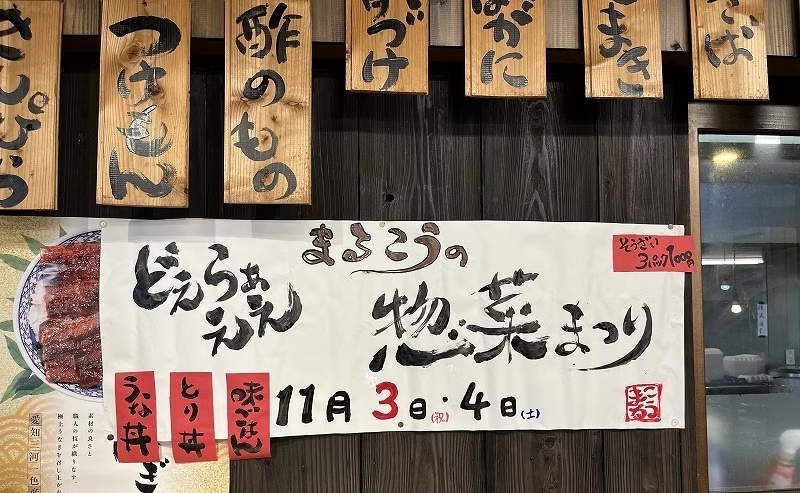 きんぴら
つけもん
酢のもの
づけ
ばがに
まき
そば
まるこうの
どえらぁえええ
惣菜まつり
そうざい
3パック1000円
11月3日(祝)・4日(土)
味ごはん
とり丼
うな丼
素材の良さと
職人の技が織りなす、
極上うなぎを召し上がれ
愛知三河一色産
ぎ